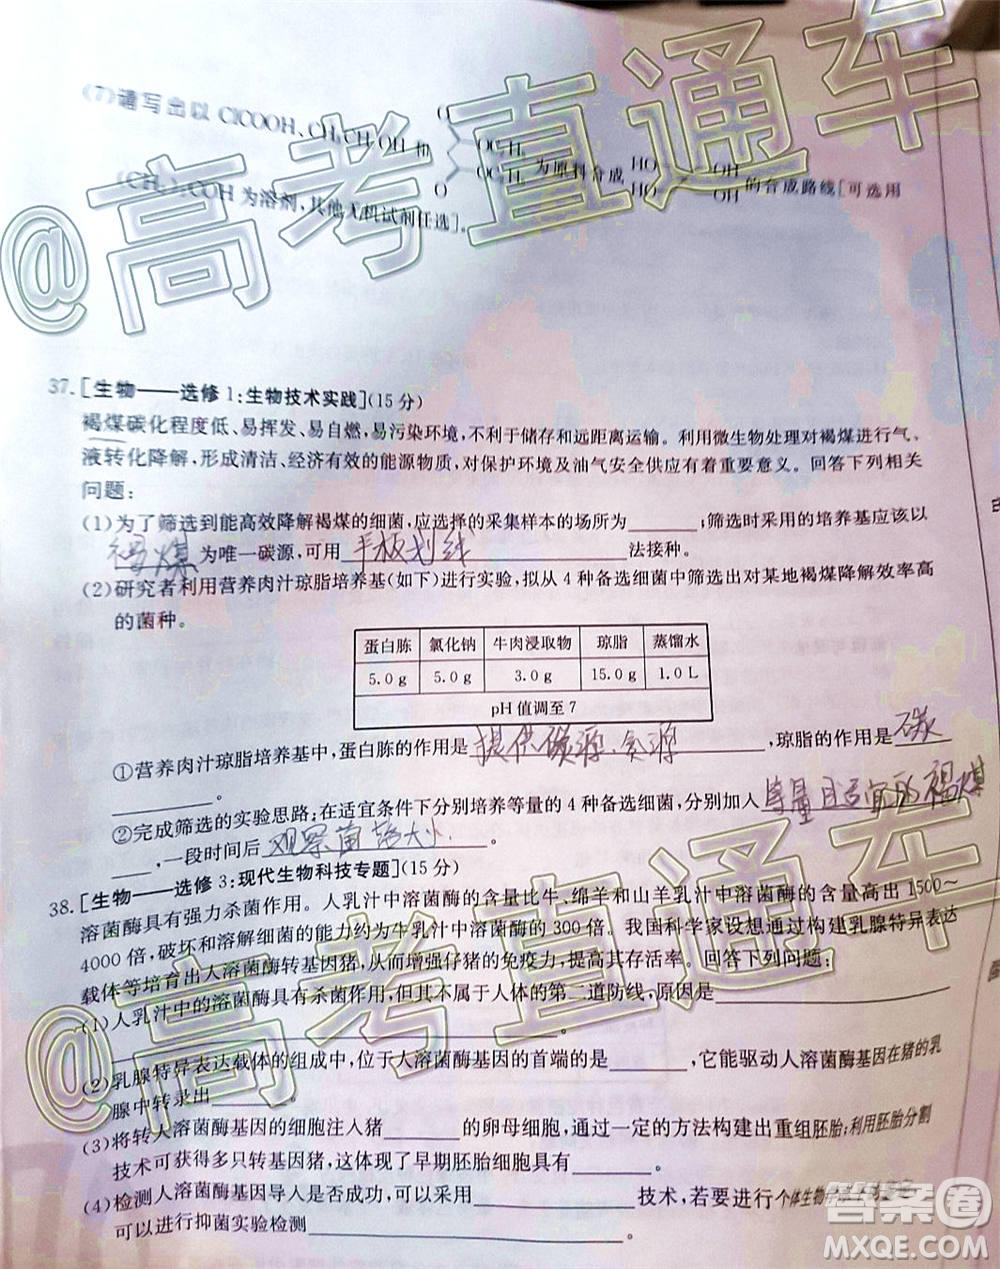 (7)请写出以 ClCOOH、CH₃CH₂OH 和
O
OC₂H₅
OC₂H₅
O
为原料合成
HO
HO
OH
OH
的合成路线[可选用
(CH₃)₃COH 为溶剂,其他无机试剂任选]。
@高考直通车
37.[生物——选修1:生物技术实践](15分)
褐煤碳化程度低、易挥发、易自燃,易污染环境,不利于储存和远距离运输。利用微生物处理对褐煤进行气、
液转化降解,形成清洁、经济有效的能源物质,对保护环境及油气安全供应有着重要意义。回答下列相关
问题:
(1)为了筛选到能高效降解褐煤的细菌,应选择的采集样本的场所为______;筛选时采用的培养基应该以
褐煤为唯一碳源,可用 平板划线 法接种。
(2)研究者利用营养肉汁琼脂培养基(如下)进行实验,拟从4种备选细菌中筛选出对某地褐煤降解效率高
的菌种。
蛋白胨 氯化钠 牛肉浸取物 琼脂 蒸馏水
5.0 g 5.0 g 3.0 g 15.0 g 1.0 L
pH 值调至 7
①营养肉汁琼脂培养基中,蛋白胨的作用是 提供碳源、氮源 ,琼脂的作用是 碳
______。
②完成筛选的实验思路:在适宜条件下分别培养等量的4种备选细菌,分别加入 等量且适宜的褐煤
______,一段时间后 观察菌落大小 。
38.[生物——选修3:现代生物科技专题](15分)
溶菌酶具有强力杀菌作用。人乳汁中溶菌酶的含量比牛、绵羊和山羊乳汁中溶菌酶的含量高出1500~
4000倍,破坏和溶解细菌的能力约为牛乳汁中溶菌酶的300倍。我国科学家设想通过构建乳腺特异表达
载体等培育出人溶菌酶转基因猪,从而增强仔猪的免疫力,提高其存活率。回答下列问题:
(1)人乳汁中的溶菌酶具有杀菌作用,但其本质不属于人体的第二道防线,原因是______
______。
(2)乳腺特异表达载体的组成中,位于人溶菌酶基因的首端的是______,它能驱动人溶菌酶基因在猪的乳
腺中转录出______。
(3)将转人溶菌酶基因的细胞注入猪______的卵母细胞,通过一定的方法构建出重组胚胎;利用胚胎分割
技术可获得多只转基因猪,这体现了早期胚胎细胞具有______。
(4)检测人溶菌酶基因导入是否成功,可以采用______技术,若要进行个体生物学
可以进行抑菌实验检测______。
@高考直通车
答案圈
MXQE.COM